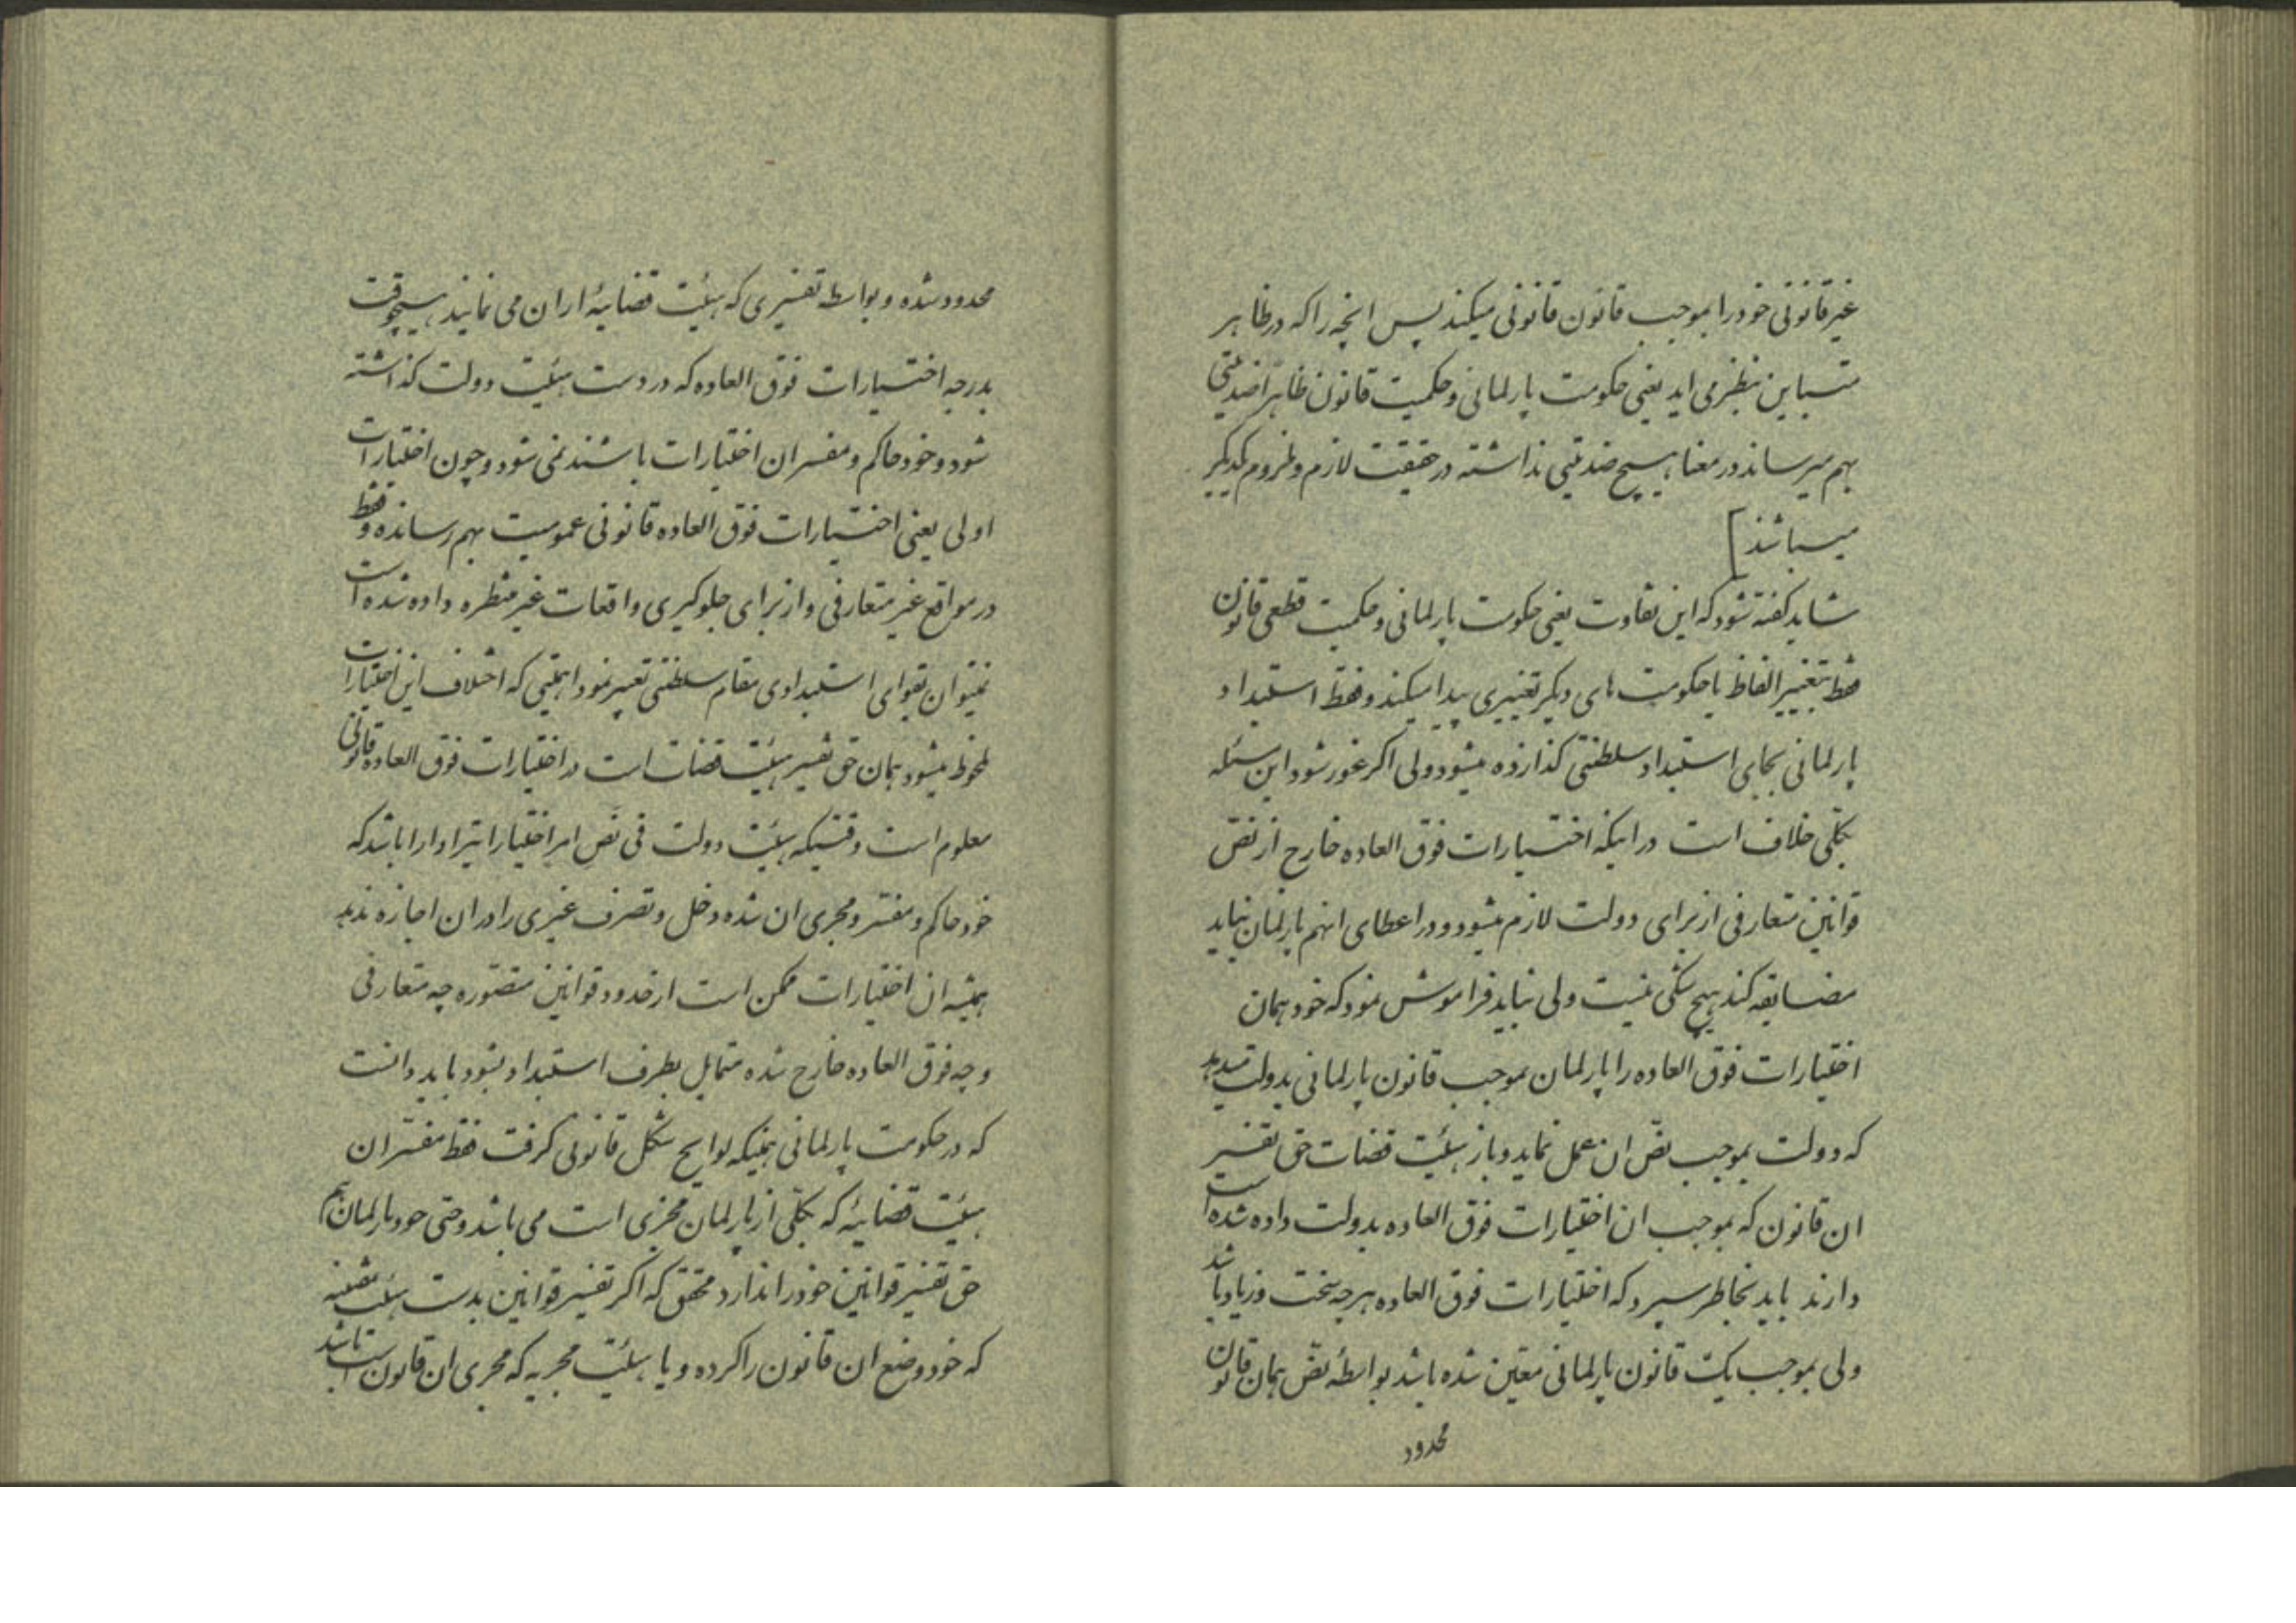 غیرقانونی خود را بموجب قانون قانونی میکند پس انچه را که در ظاهر
متباین بنظر می اید یعنی حکومت پارلمانی و حکمیت قانون ظاهراً ضدیتی
بهم میرساند در معنا هیچ ضدیتی نداشته در حقیقت لازم و ملزوم یکدیگر
میباشند]
شاید گفته شود که این تفاوت یعنی حکومت پارلمانی و حکمیت قطعی قانون
فقط بتغییر الفاظ با حکومت های دیگر تغییری پیدا میکند و فقط استبداد
پارلمانی بجای استبداد سلطنتی گذارده میشود ولی اگر غور شود این مسئله
بکلی خلاف است در اینکه اختیارات فوق العاده خارج از نص
قوانین متعارفی از برای دولت لازم میشود و در اعطای انهم پارلمان نباید
مضایقه کند هیچ شکی نیست ولی نباید فراموش نمود که خود همان
اختیارات فوق العاده را پارلمان بموجب قانون پارلمانی بدولت میدهد
که دولت بموجب نص ان عمل نماید و باز هیئت قضات حق تفسیر
ان قانون که بموجب ان اختیارات فوق العاده بدولت داده شده است
دارند باید بخاطر سپرد که اختیارات فوق العاده هر چه سخت و زیاد باشد
ولی بموجب یک قانون پارلمانی معین شده باشد بواسطهٔ نص همان قانون
محدود
محدود شده و بواسطه تفسیری که هیئت قضائیهٔ از ان می نمایند هیچوقت
بدرجه اختیارات فوق العاده که در دست هیئت دولت گذاشته
شود و خود حاکم و مفسر ان اختیارات باشند نمی شود و چون اختیارات
اولی یعنی اختیارات فوق العاده قانونی عمومیت بهم رسانده و فقط
در مواقع غیر متعارفی و از برای جلوگیری واقعات غیر منتظره داده شده است
نمیتوان بقوای استبدادی مقام سلطنتی تعبیر نمود اهمیتی که اختلاف این اختیارات
ملحوظ میشود همان حق تفسیر هیئت قضات است در اختیارات فوق العاده قانونی
معلوم است وقتیکه هیئت دولت فی نفس امر اختیاراتیرا دارا باشد که
خود حاکم و مفسر و مجری ان شده دخل و تصرف غیری را در ان اجازه ندهد
همیشه ان اختیارات ممکن است از حدود قوانین متصوره چه متعارفی
و چه فوق العاده خارج شده متمایل بطرف استبداد بشود باید دانست
که در حکومت پارلمانی همینکه لوایح شکل قانونی گرفت فقط مفسر ان
هیئت قضائیهٔ که بکلی از پارلمان مجزی است می باشد و حتی خود پارلمان هم
حق تفسیر قوانین خود را ندارد محقق که اگر تفسیر قوانین بدست هیئت مقننه
که خود وضع ان قانون را کرده و یا هیئت مجریه که مجری ان قانون است باشد